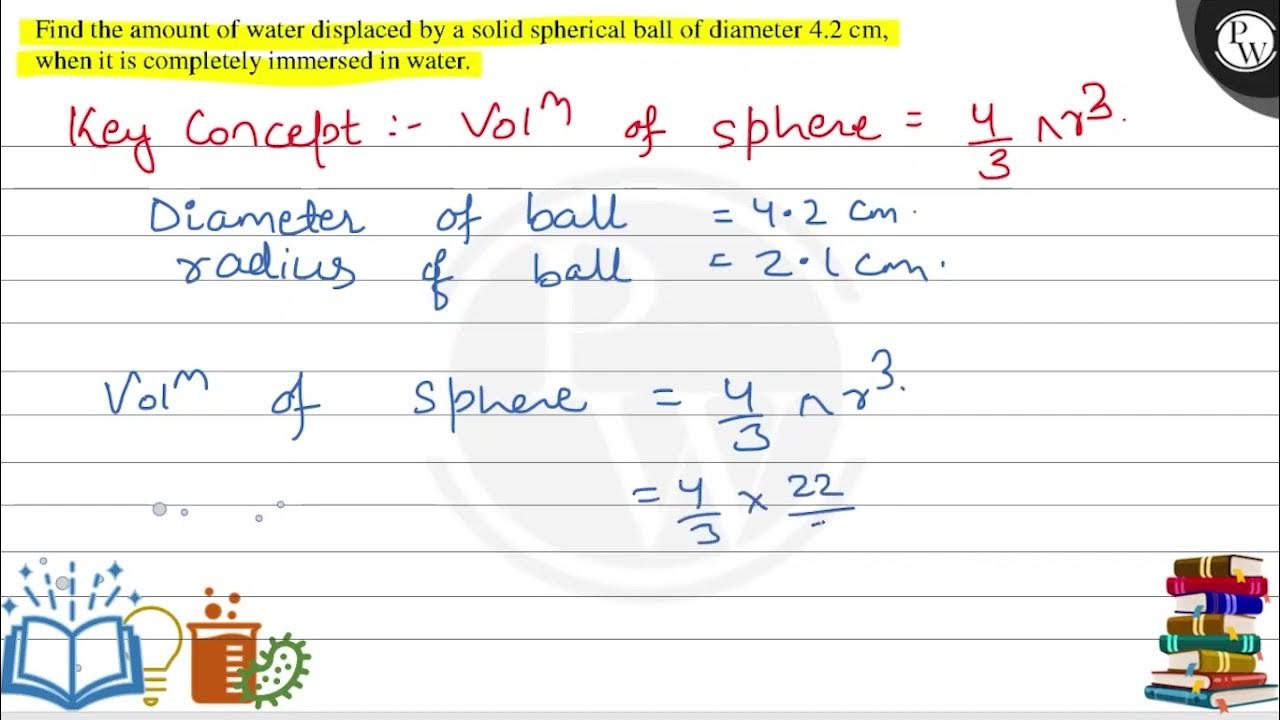 Find the amount of water displaced by a solid spherical ball of diameter 4.2 cm,
when it is completely immersed in water.
PW
Key Concept :- Volᵐ of sphere = 4/3 πr³.
Diameter of ball = 4.2 cm.
radius of ball = 2.1 cm.
Volᵐ of sphere = 4/3 πr³.
= 4/3 × 22